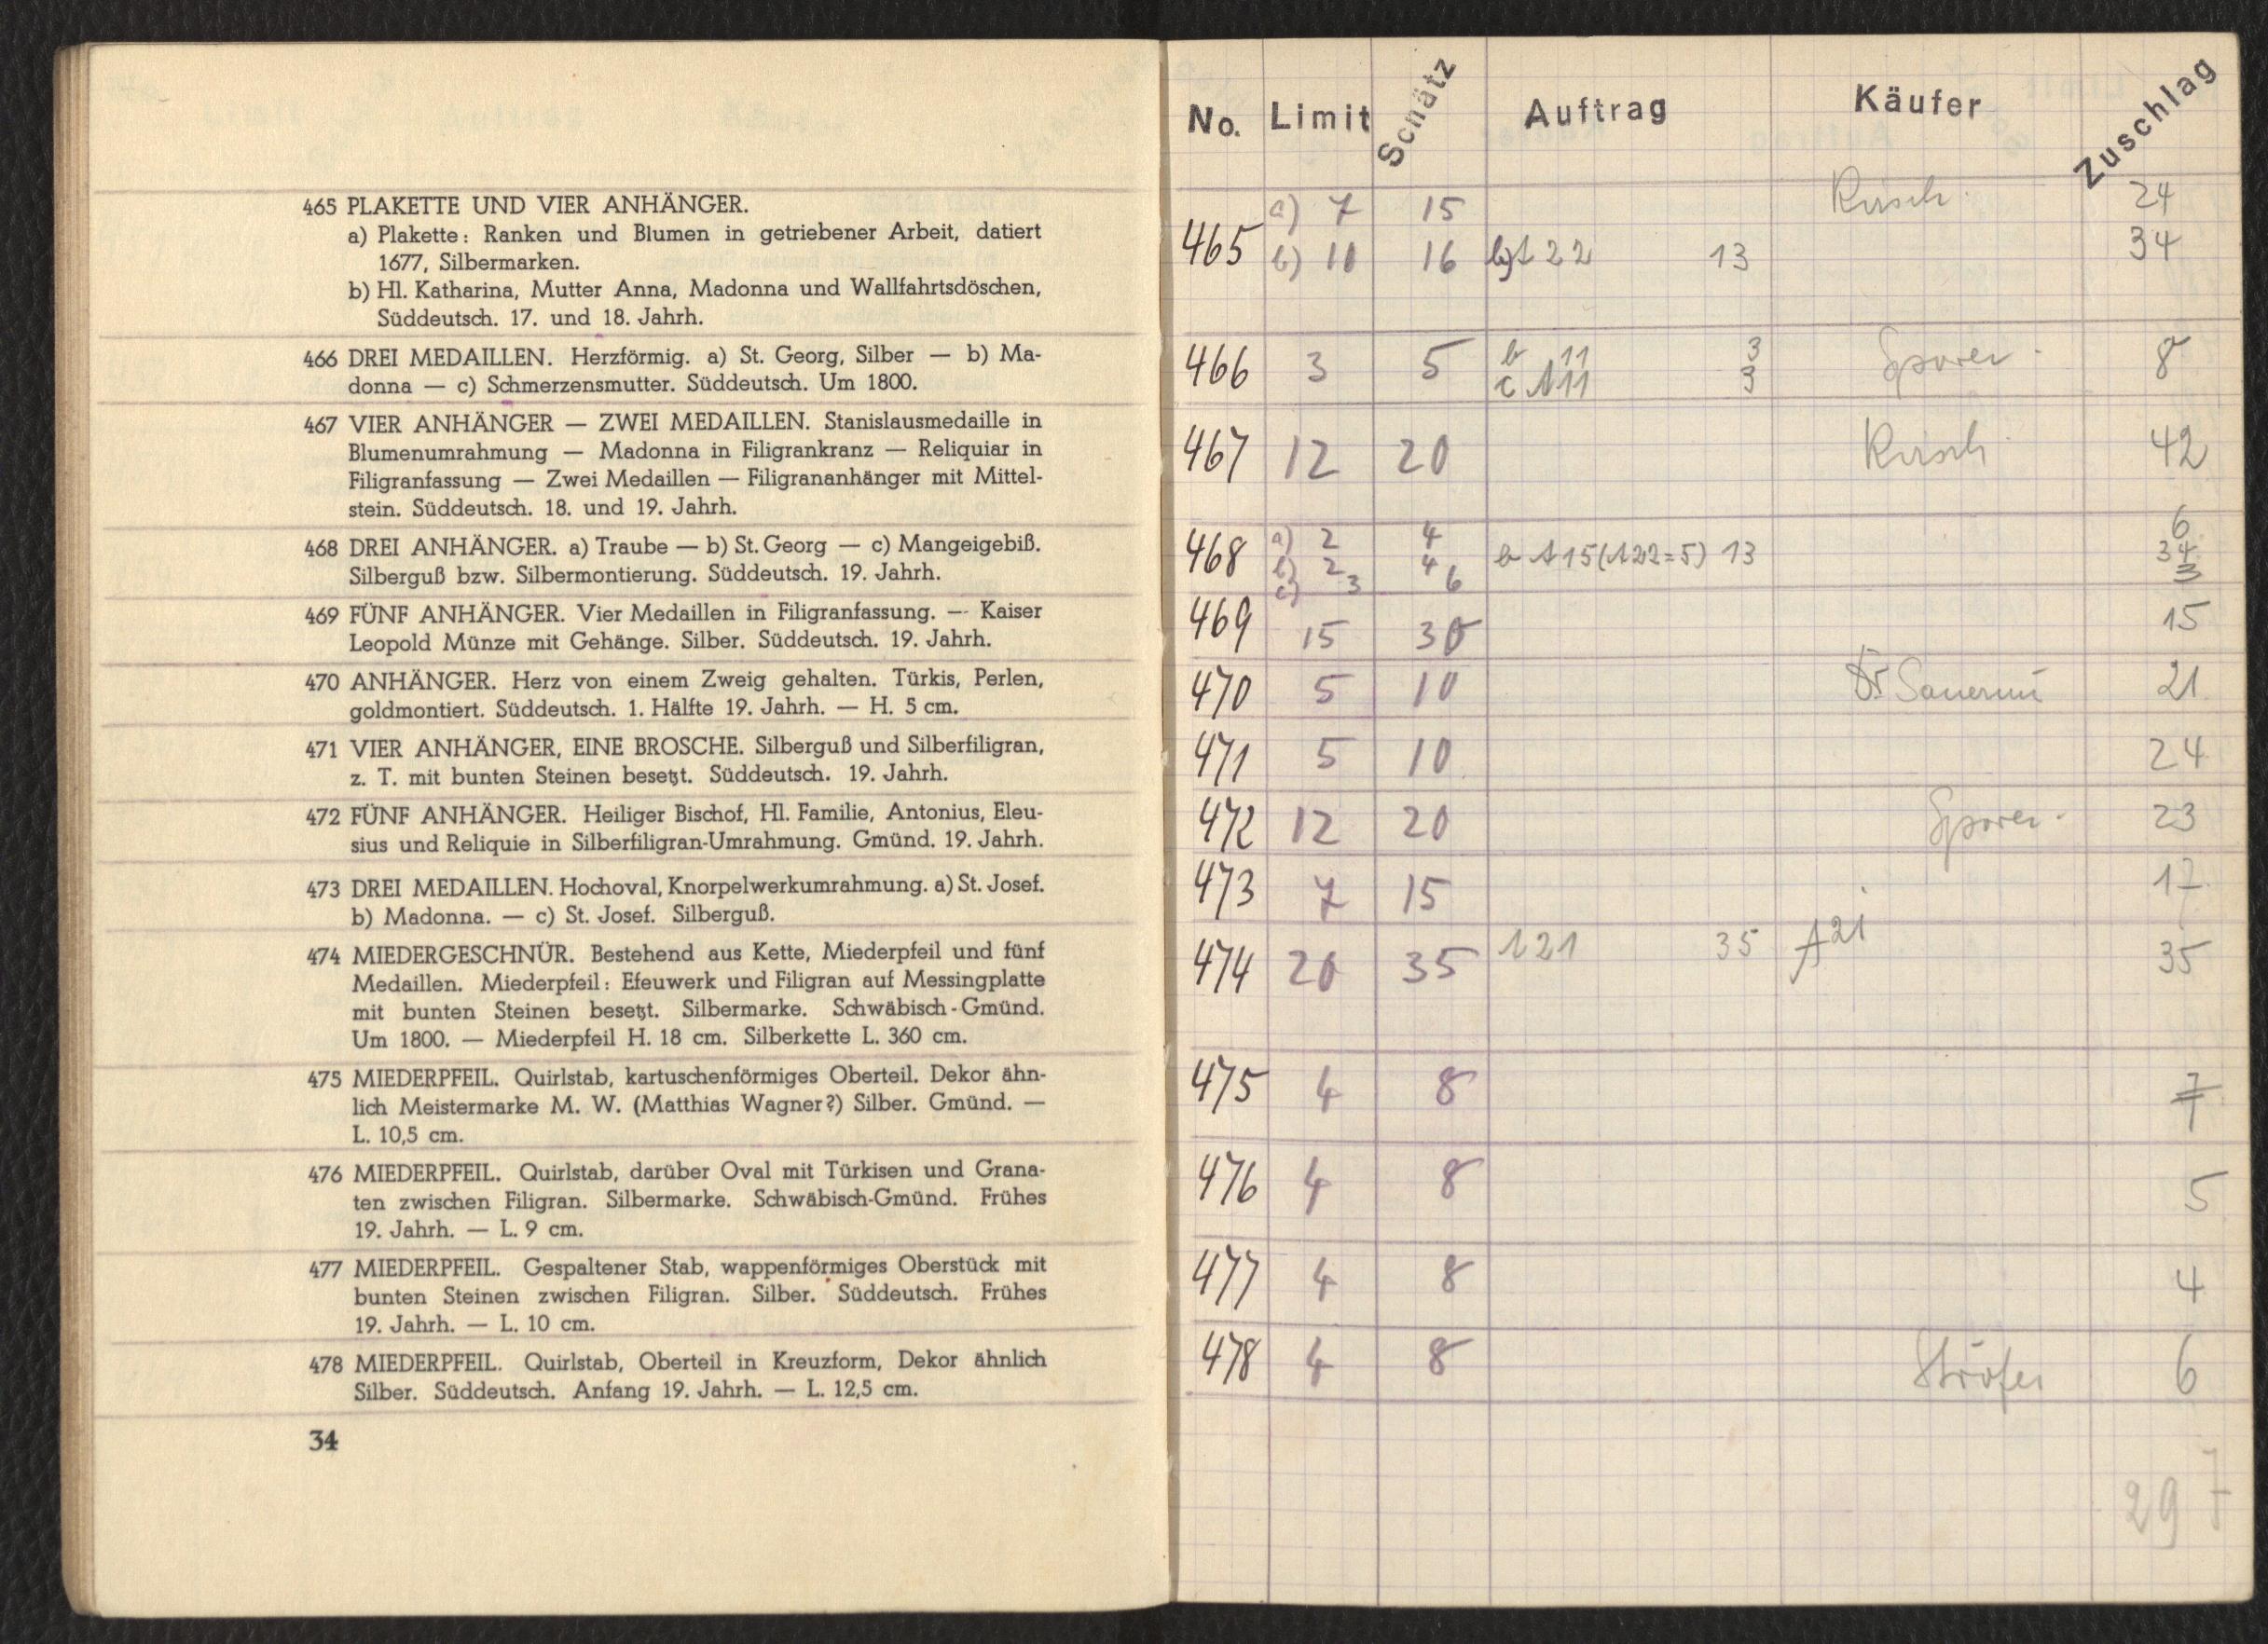 465 PLAKETTE UND VIER ANHÄNGER.
a) Plakette: Ranken und Blumen in getriebener Arbeit, datiert
1677, Silbermarken.
b) Hl. Katharina, Mutter Anna, Madonna und Wallfahrtsdöschen,
Süddeutsch. 17. und 18. Jahrh.
466 DREI MEDAILLEN. Herzförmig. a) St. Georg, Silber — b) Ma-
donna — c) Schmerzensmutter. Süddeutsch. Um 1800.
467 VIER ANHÄNGER — ZWEI MEDAILLEN. Stanislausmedaille in
Blumenumrahmung — Madonna in Filigrankranz — Reliquiar in
Filigranfassung — Zwei Medaillen — Filigrananhänger mit Mittel-
stein. Süddeutsch. 18. und 19. Jahrh.
468 DREI ANHÄNGER. a) Traube — b) St. Georg — c) Mangeigebiß.
Silberguß bzw. Silbermontierung. Süddeutsch. 19. Jahrh.
469 FÜNF ANHÄNGER. Vier Medaillen in Filigranfassung. — Kaiser
Leopold Münze mit Gehänge. Silber. Süddeutsch. 19. Jahrh.
470 ANHÄNGER. Herz von einem Zweig gehalten. Türkis, Perlen,
goldmontiert. Süddeutsch. 1. Hälfte 19. Jahrh. — H. 5 cm.
471 VIER ANHÄNGER, EINE BROSCHE. Silberguß und Silberfiligran,
z. T. mit bunten Steinen besetzt. Süddeutsch. 19. Jahrh.
472 FÜNF ANHÄNGER. Heiliger Bischof, Hl. Familie, Antonius, Eleu-
sius und Reliquie in Silberfiligran-Umrahmung. Gmünd. 19. Jahrh.
473 DREI MEDAILLEN. Hochoval, Knorpelwerkumrahmung. a) St. Josef.
b) Madonna. — c) St. Josef. Silberguß.
474 MIEDERGESCHNÜR. Bestehend aus Kette, Miederpfeil und fünf
Medaillen. Miederpfeil: Efeuwerk und Filigran auf Messingplatte
mit bunten Steinen besetzt. Silbermarke. Schwäbisch-Gmünd.
Um 1800. — Miederpfeil H. 18 cm. Silberkette L. 360 cm.
475 MIEDERPFEIL. Quirlstab, kartuschenförmiges Oberteil. Dekor ähn-
lich Meistermarke M. W. (Matthias Wagner?) Silber. Gmünd. —
L. 10,5 cm.
476 MIEDERPFEIL. Quirlstab, darüber Oval mit Türkisen und Grana-
ten zwischen Filigran. Silbermarke. Schwäbisch-Gmünd. Frühes
19. Jahrh. — L. 9 cm.
477 MIEDERPFEIL. Gespaltener Stab, wappenförmiges Oberstück mit
bunten Steinen zwischen Filigran. Silber. Süddeutsch. Frühes
19. Jahrh. — L. 10 cm.
478 MIEDERPFEIL. Quirlstab, Oberteil in Kreuzform, Dekor ähnlich
Silber. Süddeutsch. Anfang 19. Jahrh. — L. 12,5 cm.
34
No. Limit Schätz Auftrag Käufer Zuschlag
a) 7 15 Kirsch 24
465 b) 10 16 22 13 34
466 3 5 b 11 3 Sporer 8
c A11 3
467 12 20 Kirsch 42
468 a) 2 4 6
b) 2 4 b A15 (A22=5) 13 34
c) 3 6 3
469 15 30 15
470 5 10 21
471 5 10 24
472 12 20 Sporer 23
473 7 15 17
474 20 35 A21 35 A21 35
475 4 8 7
476 4 8 5
477 4 8 4
478 4 8 6
297